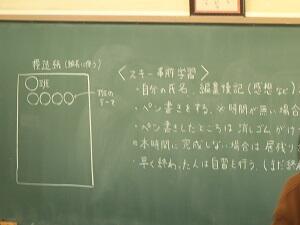 模造紙(縦長に使う)
○班
○○○○
班の
テーマ
〈スキー事前学習〉
・自分の氏名、編集後記(感想など)
・ペン書きをする。※時間が無い場合
・ペン書きしたところは消しゴムがけ
※本時間に完成しない場合は居残り
・早く終わった人は自習を行う。(まだ終